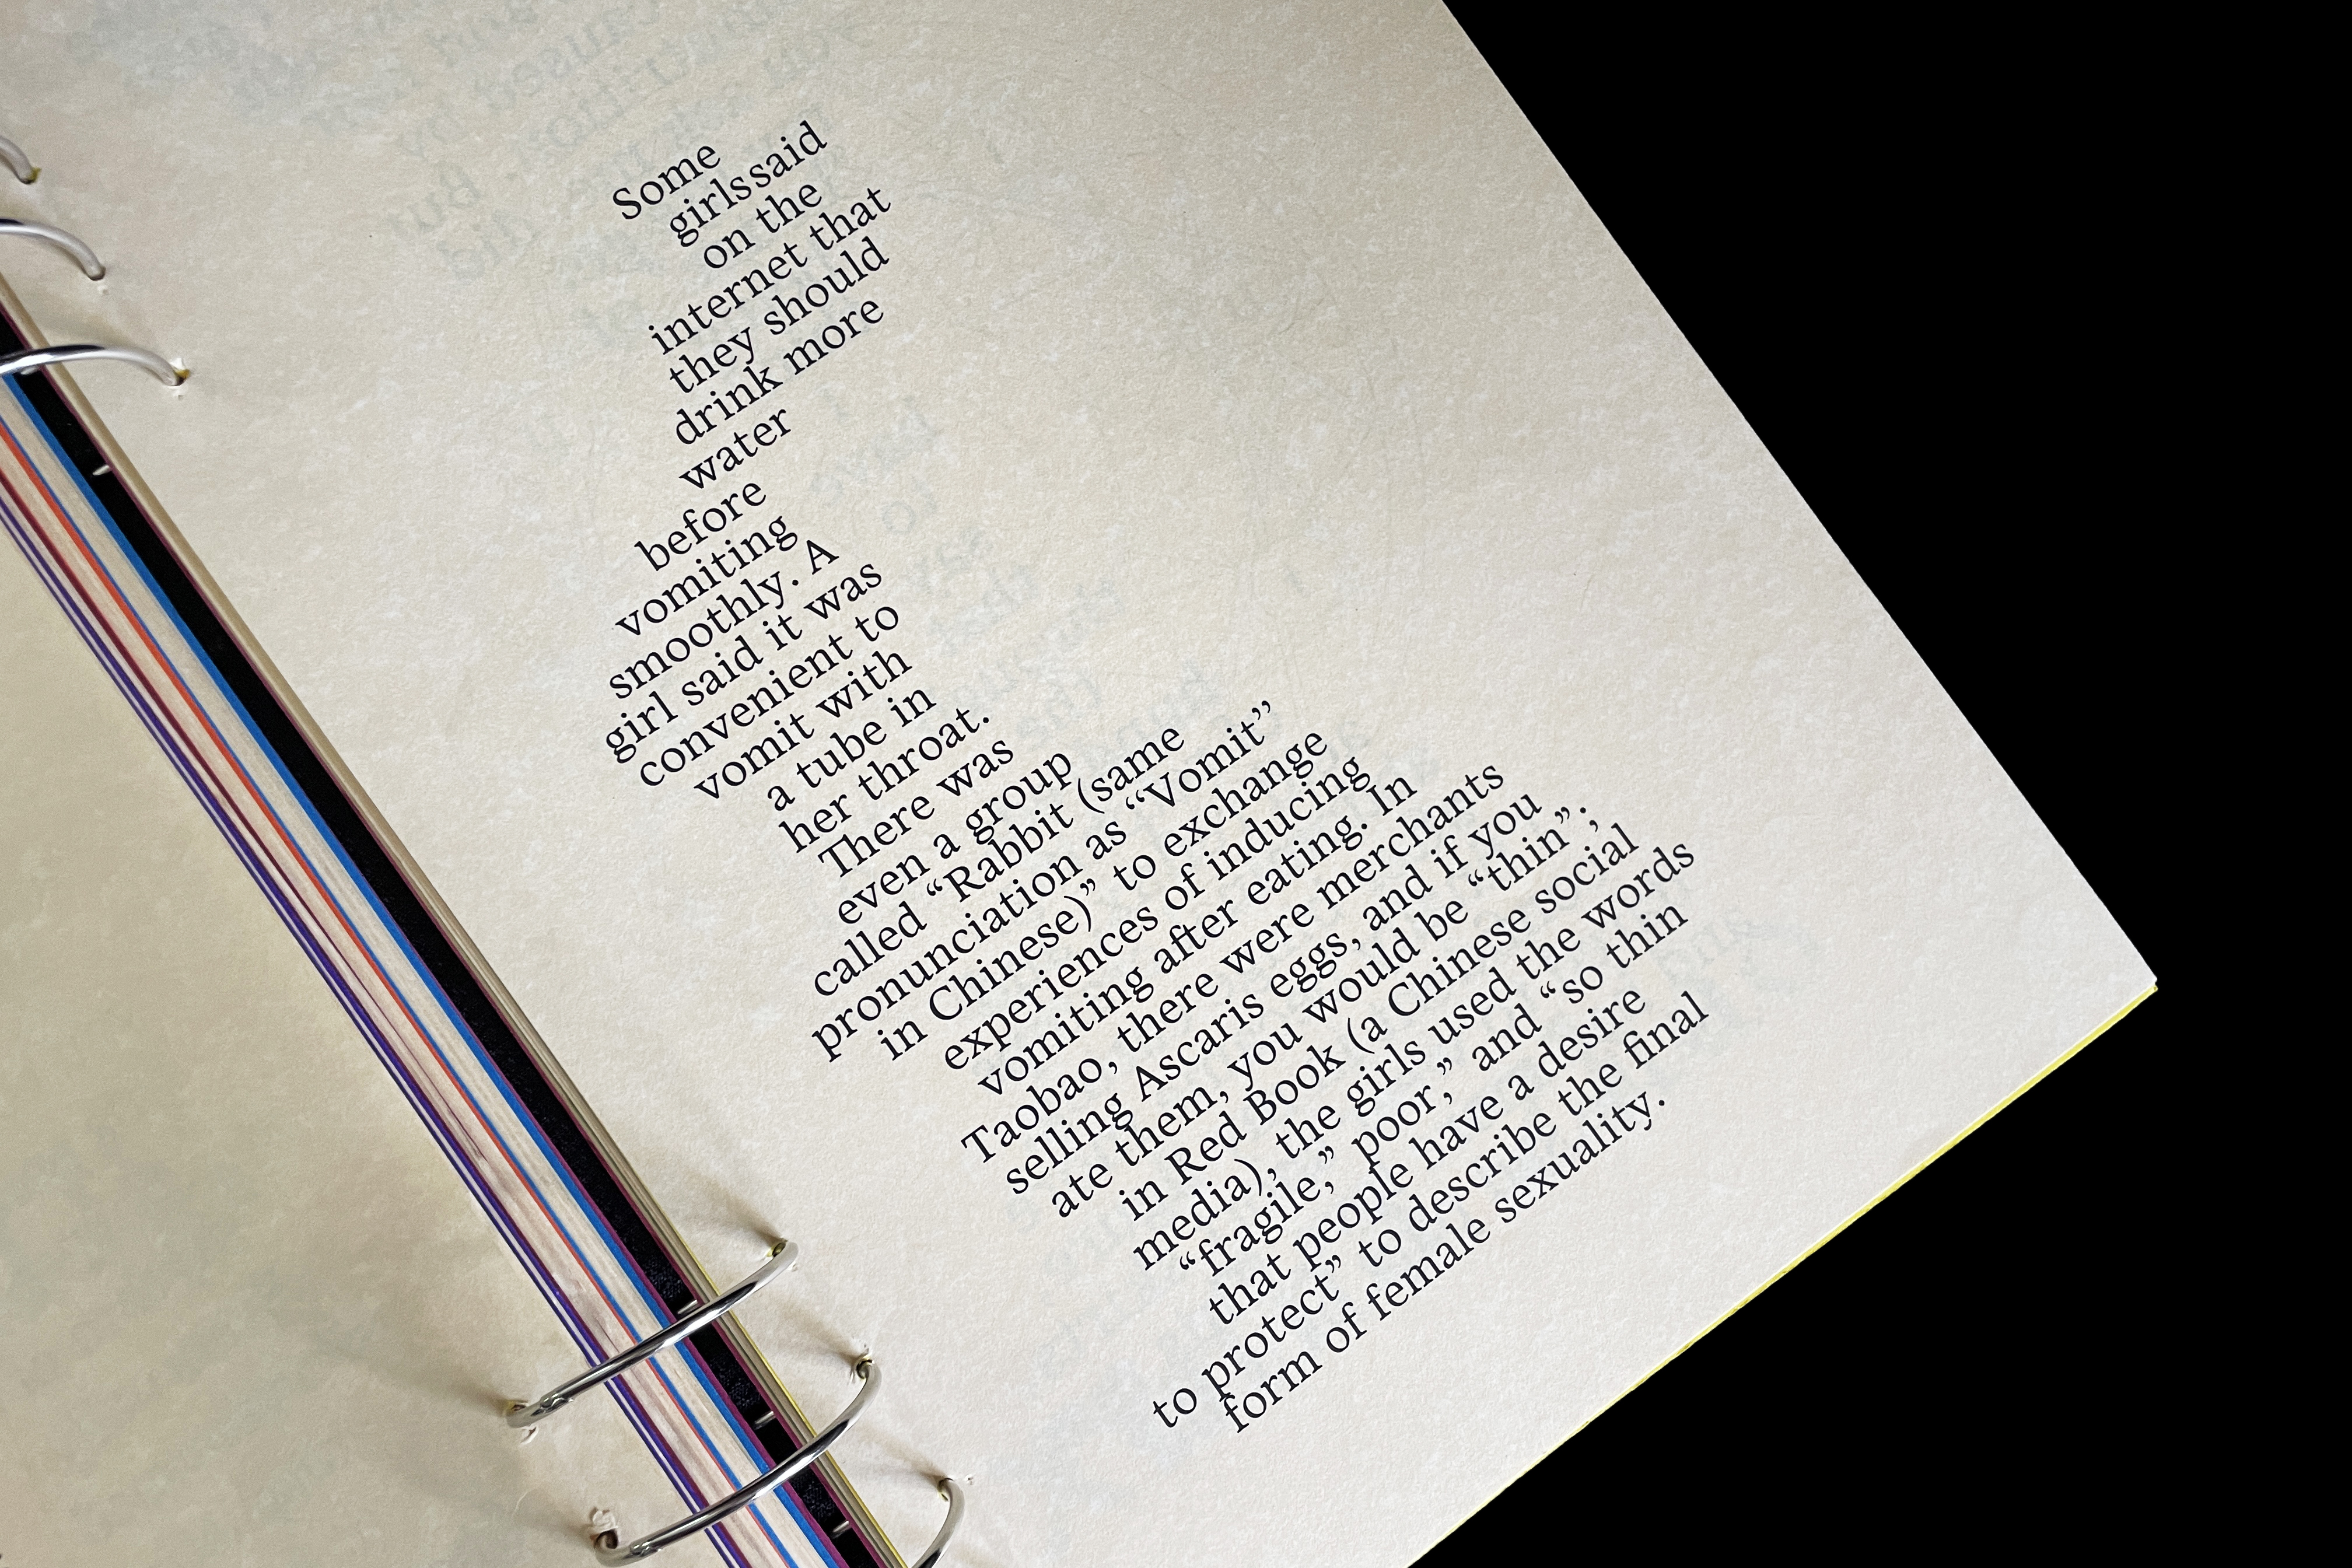 Some
girls said
on the
internet that
they should
drink more
water
before
vomiting
smoothly. A
girl said it was
convenient to
vomit with
a tube in
her throat.
There was
even a group
called “Rabbit (same
pronunciation as “Vomit”
in Chinese)” to exchange
experiences of inducing
vomiting after eating. In
Taobao, there were merchants
selling Ascaris eggs, and if you
ate them, you would be “thin”;
in Red Book (a Chinese social
media), the girls used the words
“fragile,” poor,” and “so thin
that people have a desire
to protect” to describe the final
form of female sexuality.